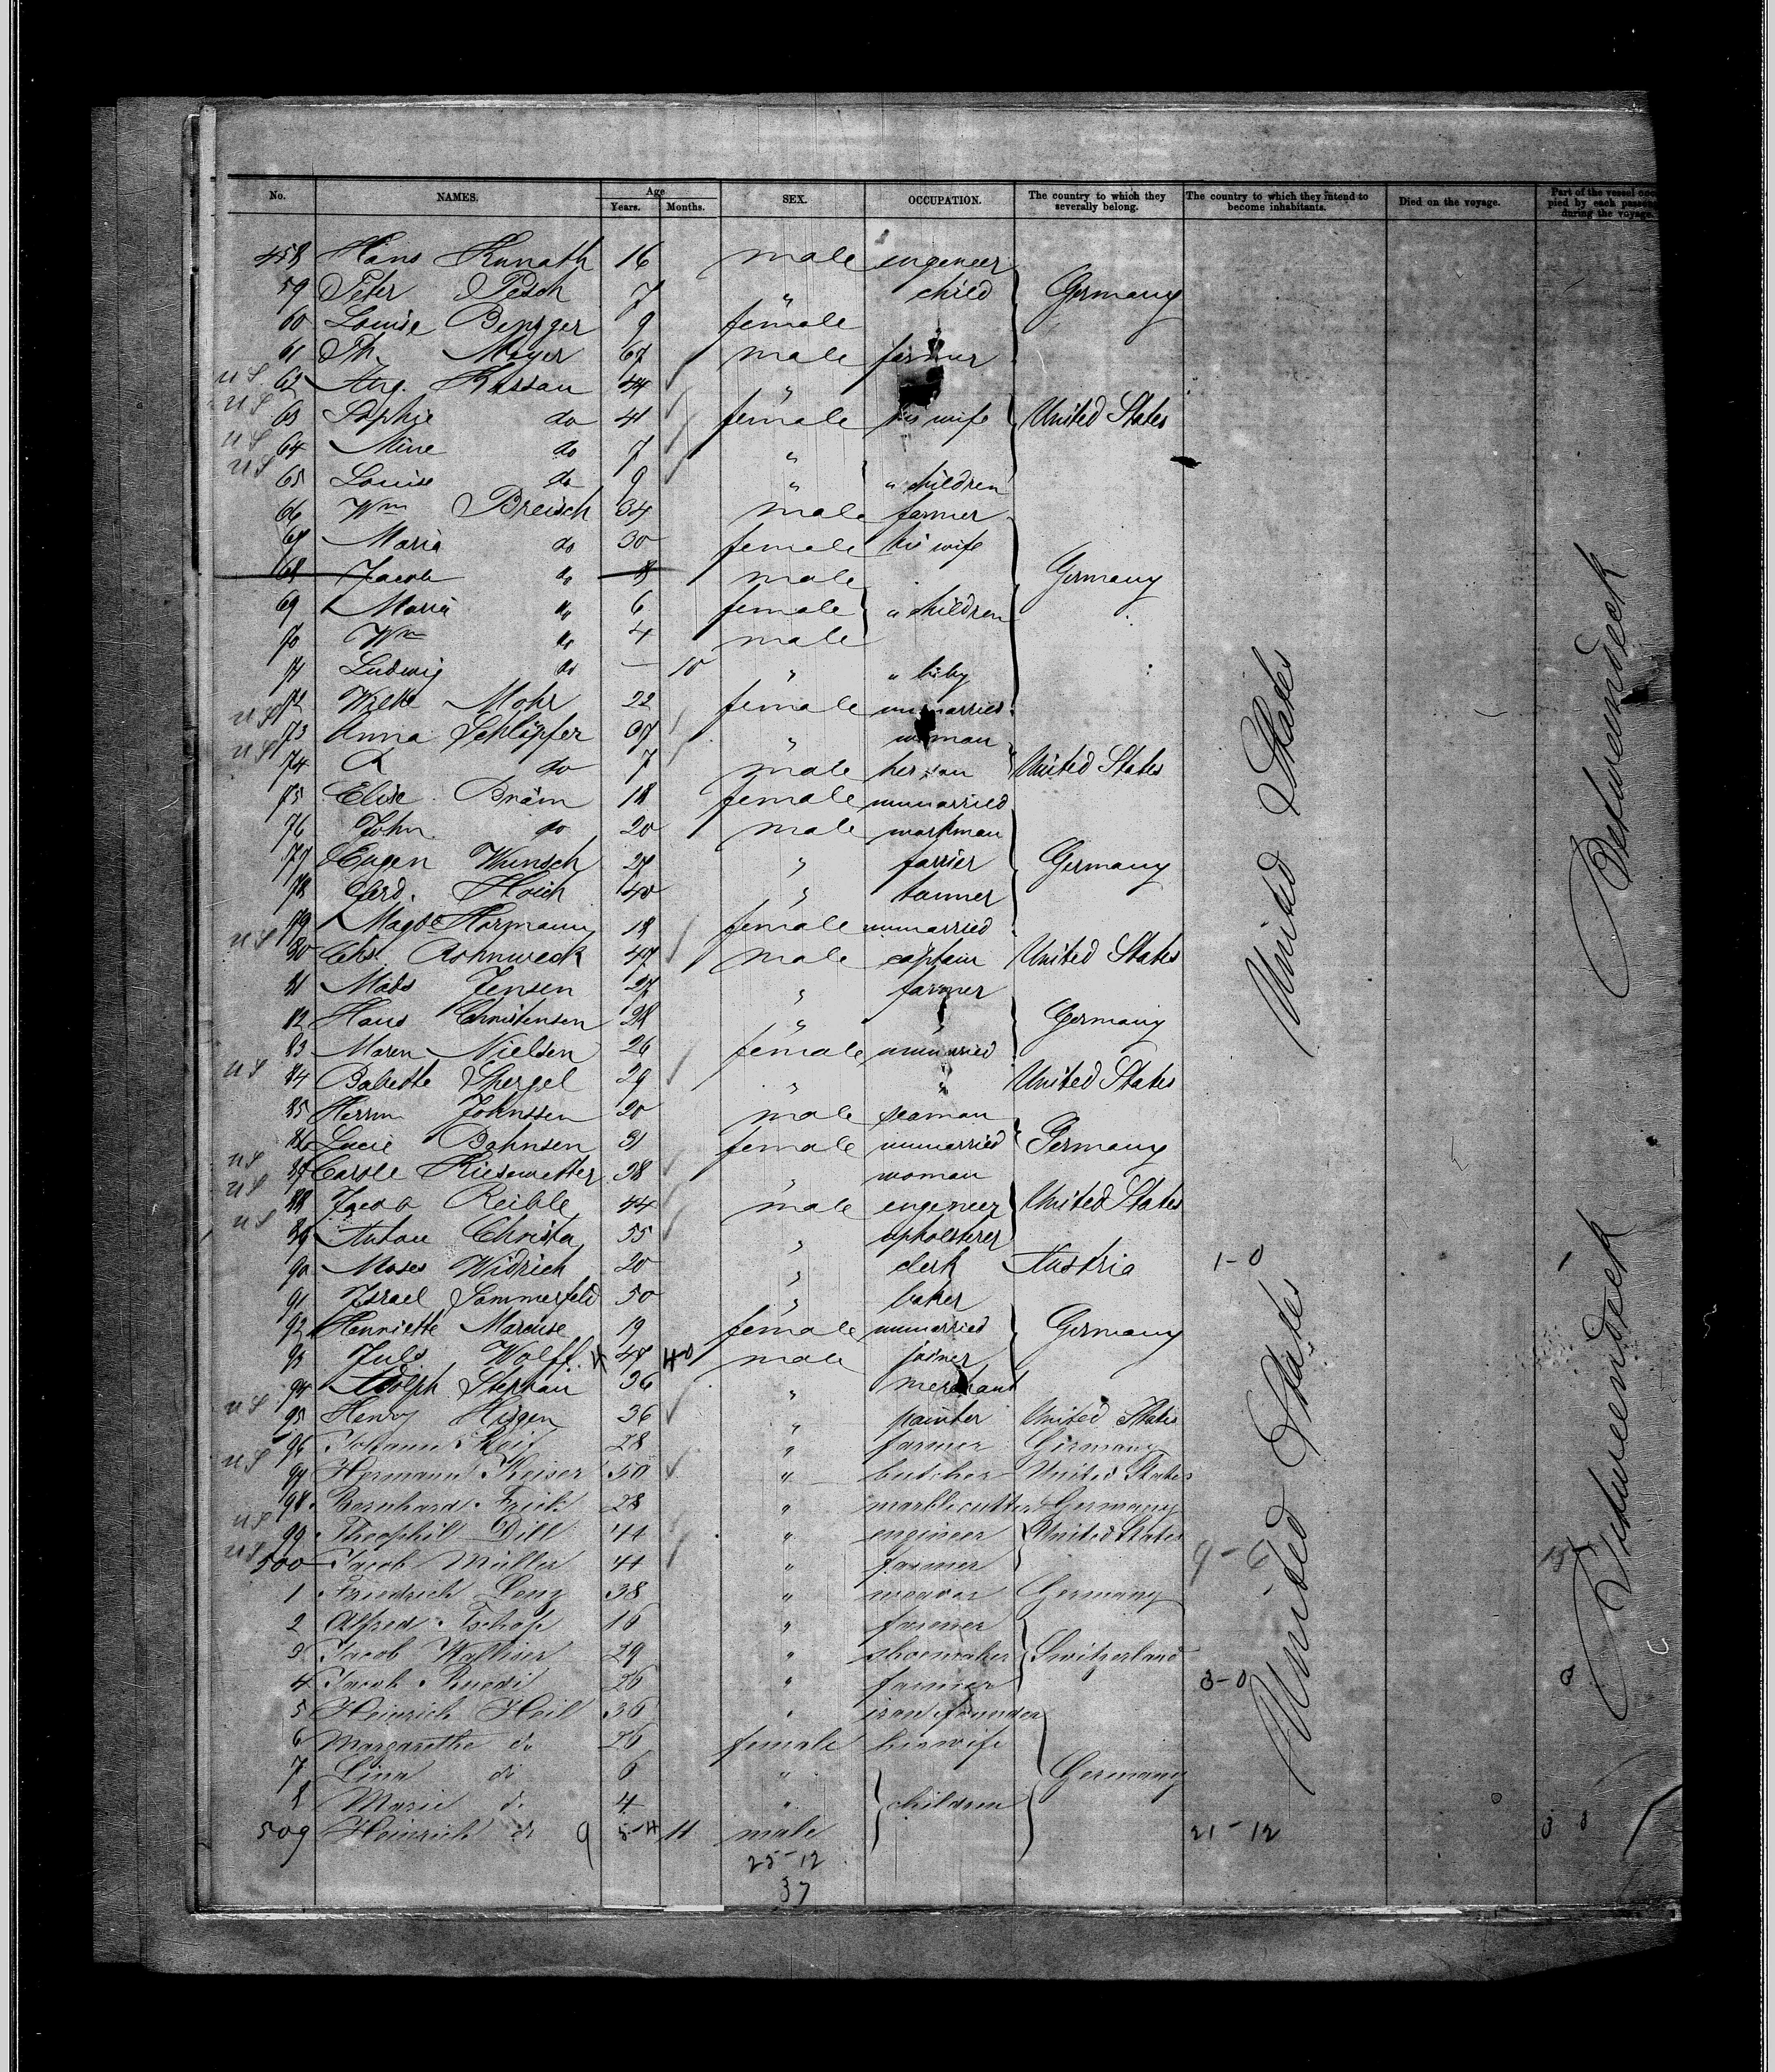 No. NAMES. Age Years. Months. SEX. OCCUPATION. The country to which they severally belong. The country to which they intend to become inhabitants. Died on the voyage. Part of the vessel pied by each during the voyage.
458 Hans Kunath 16 male engeneer
59 Peter Pesch 7 " child Germany
60 Louise 9 female
61 Th. Mayer 67 male farmer
US 62 Aug. Kassau 44 "
US 63 Sophie do 41 female his wife United States
US 64 Mine do 7 "
US 65 Louise do 9 " " children
66 Wm Breisch 34 male farmer
67 Maria do 30 female his wife
68 Jacob do 8 male Germany
69 Maria do 6 female " children
70 Wm do 4 male
71 Ludwig do — 10 " " baby
72 Wilhe Mohr 22 female unmarried
US 73 Anna Schläpfer 37 " woman
US 74 R do 7 male her son United States
75 Elise Bräm 18 female unmarried
76 John do 20 male workman
77 Eugen Wunsch 27 " farrier Germany
78 Herd. Hoich 40 " tanner
79 Magde Hormann 18 female unmarried
US 80 Chs. Rohnweck 47 male captain United States
81 Mads Jensen 27 " farmer
82 Hans Christensen 28 " " Germany
83 Maren Nielsen 26 female unmarried
US 84 Babette Spergel 29 " " United States
85 Herrm Johnssen 20 male seaman
86 Lucie Bahnsen 31 female unmarried Germany
US 87 Carole Kiesewetter 38 " woman
US 88 Jacob Reible 44 male engeneer United States
US 89 Anton Christa 55 " upholsterer
90 Moses Widrich 20 " clerk Austria 1-0 1
91 Israel Sommerfeld 50 " baker
92 Henriette Marcuse 19 female unmarried Germany
93 Juls Wolff 47 male joiner
94 Adolph Stephan 36 " merchant
US 95 Henry Hisgen 36 " painter United States
96 Johann Reif 28 " farmer Germany
US 97 Hermann Keiser 50 " butcher United States
98 Bernhard Frick 28 " marblecutter Germany
US 99 Theophil Dill 44 " engineer United States
US 500 Jacob Müller 41 " farmer
1 Friedrich Lenz 38 " weaver Germany
2 Alfred Tschop 16 " farmer
3 Jacob Walliser 29 " shoemaker Switzerland
4 Jacob Ruedi 26 " farmer 3-0 3
5 Heinrich Heil 36 " iron founder
6 Margarethe do 26 female his wife
7 Lina do 6 " Germany
8 Marie do 4 " children
509 Heinrich do 9 11 male 21-12
25-12
37
United States
United States
Betweendeck
Betweendeck